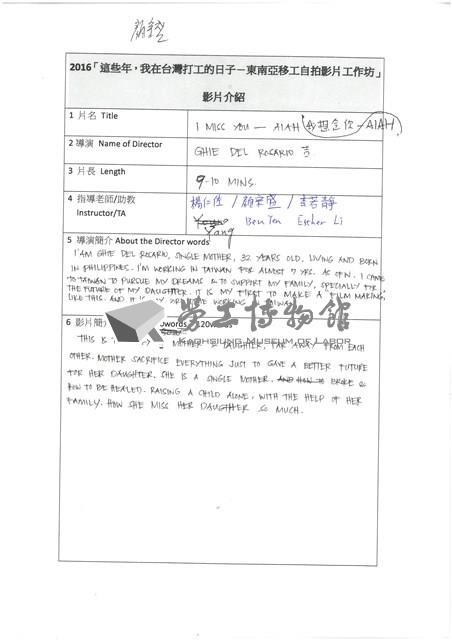 2016「這些年，我在台灣打工的日子－東南亞移工自拍影片工作坊」
影片介紹
1 片名 Title
I MISS YOU — AIAH (我想念你 - AIAH)
2 導演 Name of Director
GHIE DEL ROSARIO
3 片長 Length
9-10 MINS.
4 指導老師/助教
Instructor/TA
楊仁佐 / 顧宗盛 / 李若靜
Yang Ben Ten Esther Li
5 導演簡介 About the Director words
I'AM GHIE DEL ROSARIO, SINGLE MOTHER, 32 YEARS OLD. LIVING AND BORN
IN PHILIPPINES. I'M WORKING IN TAIWAN FOR ALMOST 7 YRS. AS OFW. I CAME
TO TAIWAN TO PURSUE MY DREAMS & TO SUPPORT MY FAMILY, SPECIALLY FOR
THE FUTURE OF MY DAUGHTER. IT IS MY FIRST TO MAKE A "FILM MAKING"
LIKE THIS. AND IT IS MY WORKING TAIWAN
6 影片簡 words 120words
THIS IS MOTHER & DAUGHTER, FAR AWAY FROM EACH
OTHER. MOTHER SACRIFICE EVERYTHING JUST TO GAVE A BETTER FUTURE
FOR HER DAUGHTER. SHE IS A SINGLE MOTHER, AND HOW TO BROKE &
HOW TO BE HEALED. RAISING A CHILD ALONE, WITH THE HELP OF HER
FAMILY. HOW SHE MISS HER DAUGHTER SO MUCH.
勞工博物館
KAOHSIUNG MUSEUM OF LABOR